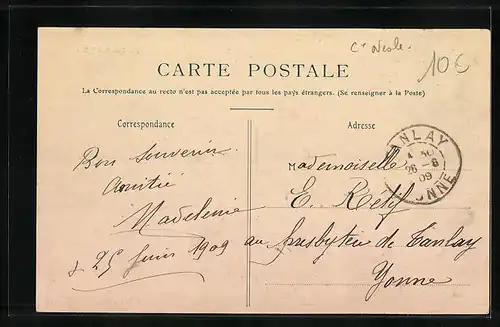 10€
CARTE POSTALE
La Correspondance au recto n'est pas acceptée par tous les pays étrangers. (Se renseigner à la Poste)
Correspondance
Adresse
Bon Souvenir
Amitié
Madeleine
25 Juin 1909
TANLAY
26 -6
09
YONNE
Mademoiselle
E. Rétif
au presbytère de Tanlay
Yonne